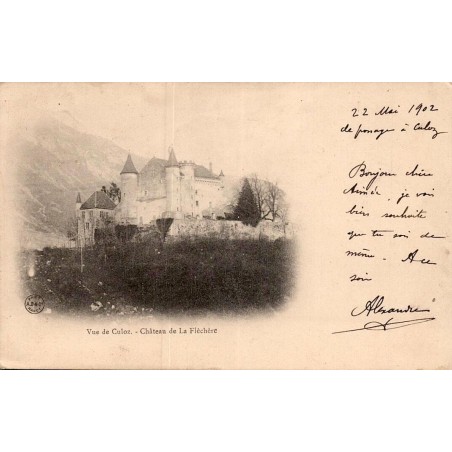 22 Mai 1902
de passage à Culoz
Bonjour chère
Aimée, je vais
bien souhaite
que tu soi de
même. A ce
soir
Alexandre
Vue de Culoz. - Château de La Fléchère